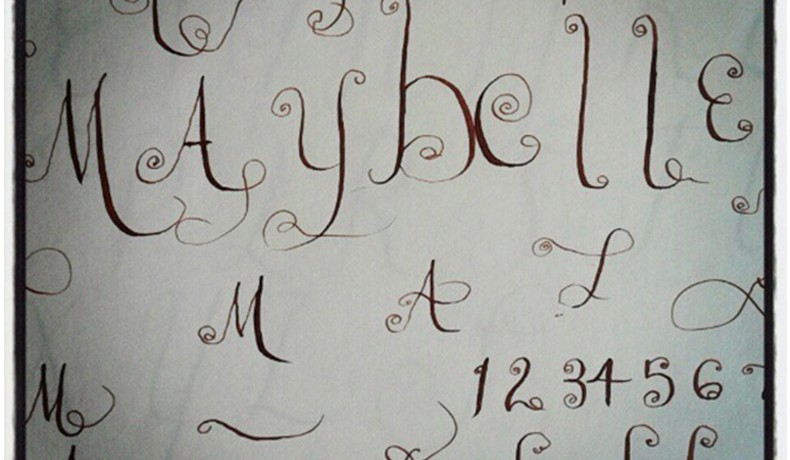 MAybellE
M A L
M 1 2 3 4 5 6